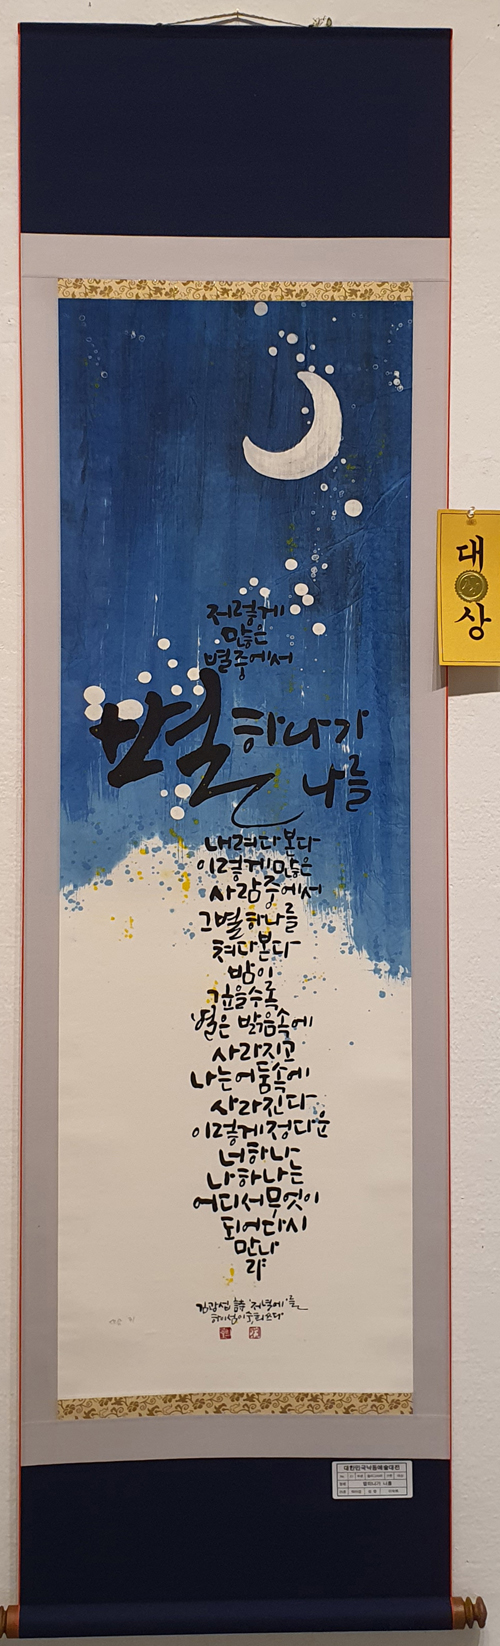 저렇게
많은
별중에서
별 하나가
나를
내려다 본다
이렇게 많은
사람중에서
그별 하나를
쳐다본다
밤이
깊을수록
별은 밝음속에
사라지고
나는 어둠속에
사라진다
이렇게 정다운
너 하나
나 하나는
어디서 무엇이
되어 다시
만나
랴
김광섭 詩 '저녁에'를
대
상
별하나가 나를